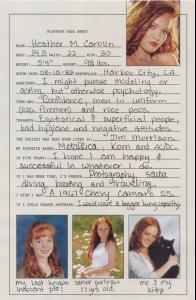 PLAYMATE DATA SHEET
NAME: Heather M. Carolin
BUST: 34B WAIST: 22 HIPS: 30
HEIGHT: 5'4" WEIGHT: 98 lbs.
BIRTH DATE: BIRTHPLACE: Harbor City, CA
AMBITIONS: I might pursue modeling or
acting, but otherwise psychology.
TURN-ONS: Confidence, men in uniform
(esp. firemen) and nice pecs.
TURNOFFS: Egotistical & superficial people,
bad hygiene and negative attitudes.
Jim Morrison.
MY FAVORITE BANDS: Metallica, Korn and AC/DC.
IN FIVE YEARS: I hope I am happy &
successful in whatever I do.
IF I HAD MORE TIME, I'D PURSUE: Photography, scuba
diving, boating and traveling.
I WISH I HAD: A 1967 Chevy Camaro SS.
IF I COULD CHANGE ANYTHING: I would have a bigger lung capacity.
my last known innocent pic!
senior portrait 17 yrs. old
me & my kitty